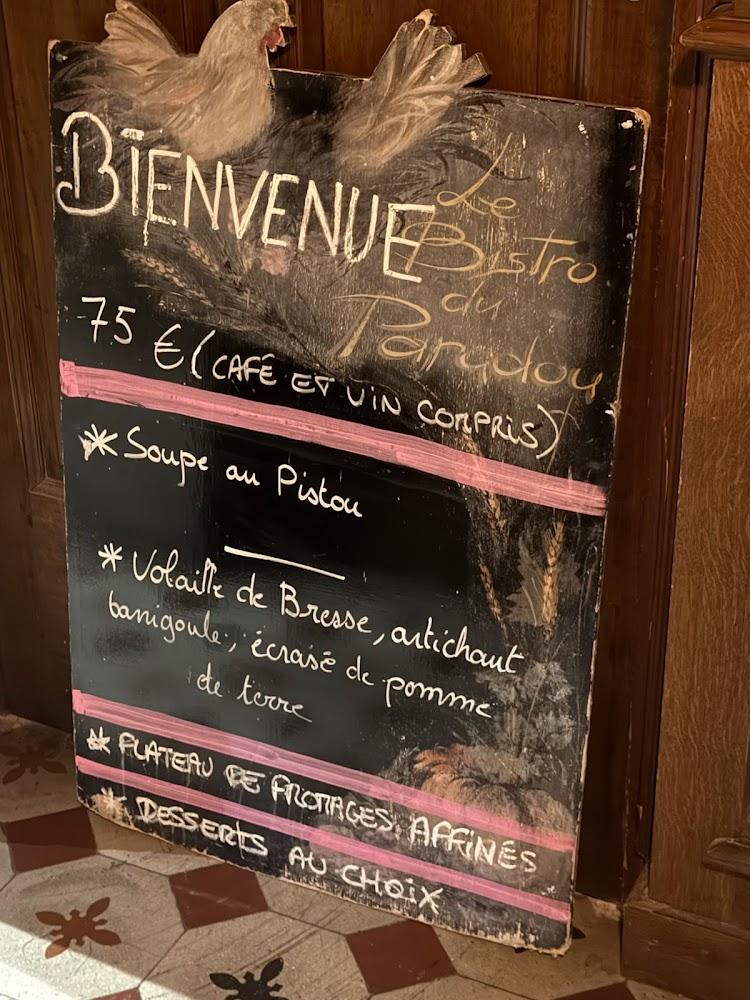 BIENVENUE
Le
Bistro
du
Paradou
75 € (CAFÉ ET VIN COMPRIS)
* Soupe au Pistou
* Volaille de Bresse, artichaut
barigoule, écrasé de pomme
de terre
* PLATEAU DE FROMAGES AFFINÉS
* DESSERTS AU CHOIX